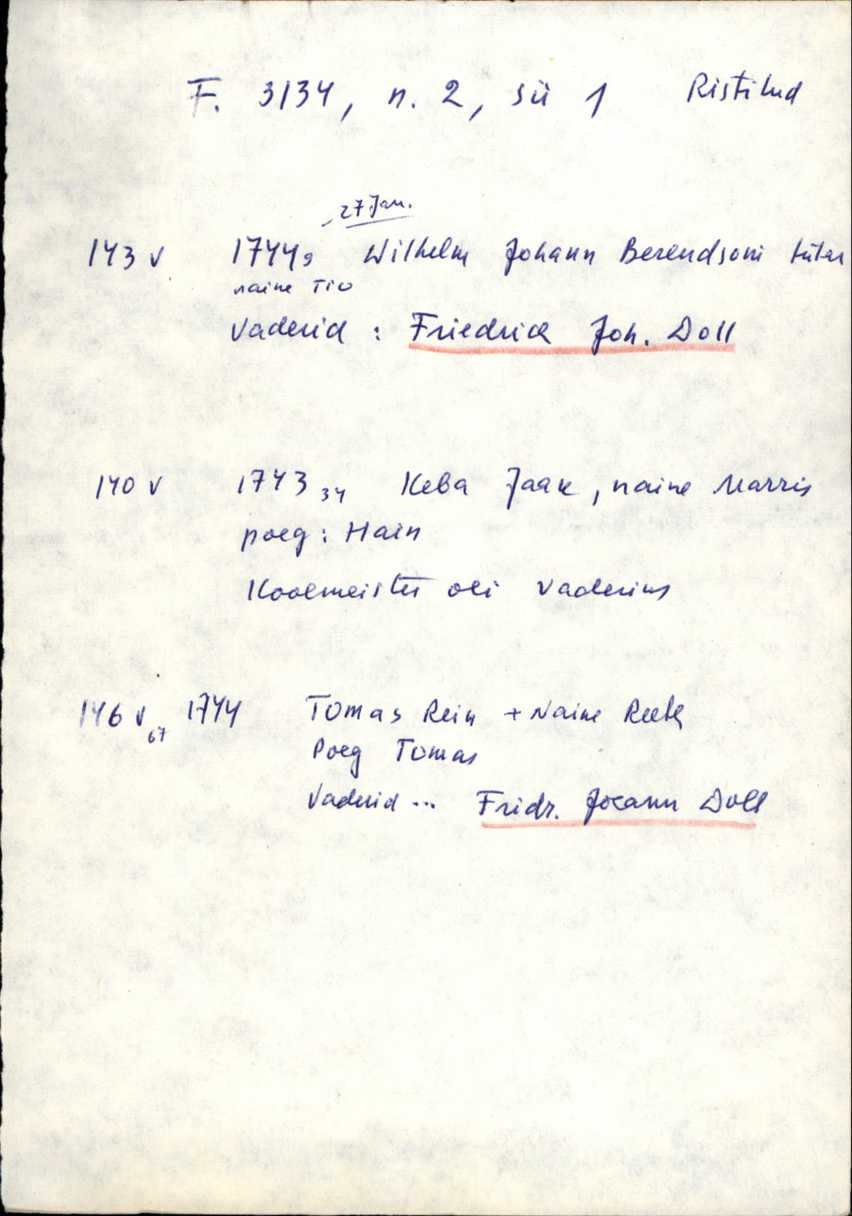 F. 3134, n. 2, sü 1 Ristitud
27 Jan.
143 v 1744 9 Wilhelm Johann Berendsoni tütar
naine Tio
Vaderid : Friedrich Joh. Doll
140 v 1743 34 Keba Jaak, naine Marris
poeg : Hain
Koolmeister oli vaderiks
146 v 67 1744 Tomas Rein + Naine Reet
Poeg Tomas
Vaderid ... Fridr. Johann Doll